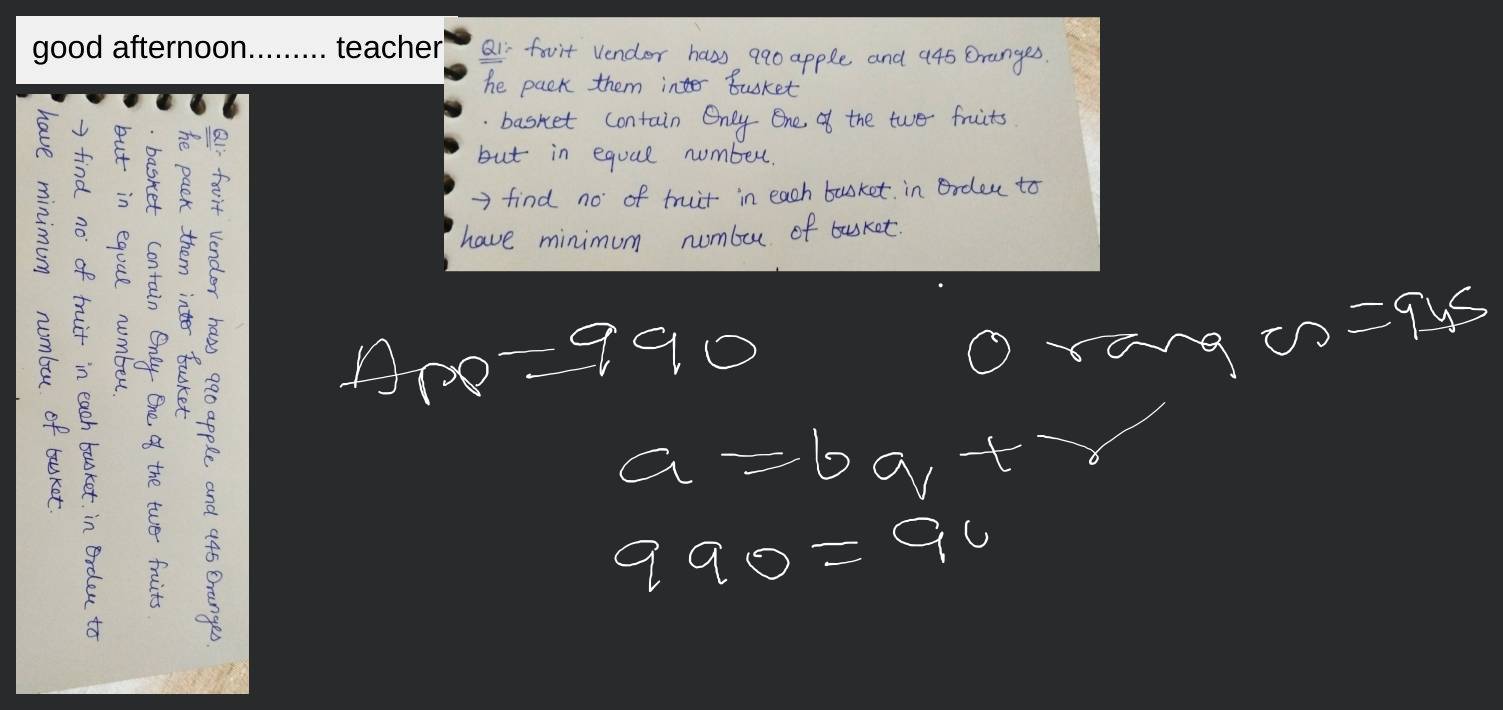 good afternoon......... teacher
Q1:- fruit vendor hass 990 apple and 945 Oranges.
he pack them into busket
. basket contain Only One of the two fruits
but in equal number.
→ find no of fruit in each busket. in Order to
have minimum number of busket.
Q1:- fruit vendor hass 990 apple and 945 Oranges.
he pack them into busket
. basket contain Only One of the two fruits
but in equal number.
→ find no of fruit in each busket. in Order to
have minimum number of busket.
App = 990 Oranges = 945
a = bq + r
990 = 94